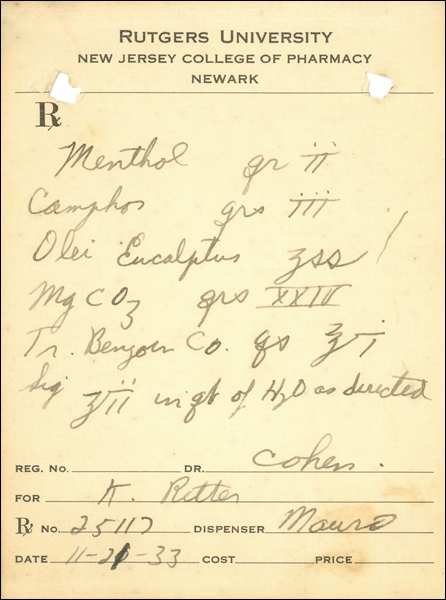 RUTGERS UNIVERSITY
NEW JERSEY COLLEGE OF PHARMACY
NEWARK
℞
Menthol gr ii
Camphor grs iii
Olei Eucalptus ʒss
MgCO3 grs XXIV
Tr. Benzoin Co. qs ℥i
Sig ʒii in qt of H2O as directed
REG. NO. DR. Cohen.
FOR K. Ritter
℞ NO. 25117 DISPENSER Mauro
DATE 11-21-33 COST PRICE